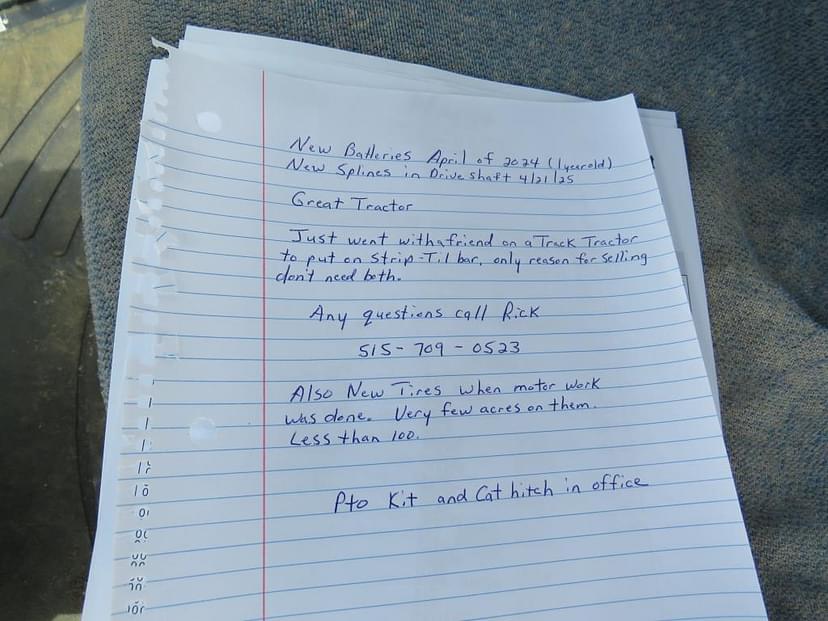 New Batteries April of 2024 (1 year old)
New Splines in Drive shaft 4/21/25
Great Tractor
Just went with a friend on a Track Tractor
to put on Strip-Til bar, only reason for selling
don't need both.
Any questions call Rick
515-709-0523
Also New Tires when motor work
was done. Very few acres on them.
Less than 100.
Pto Kit and Cat hitch in office